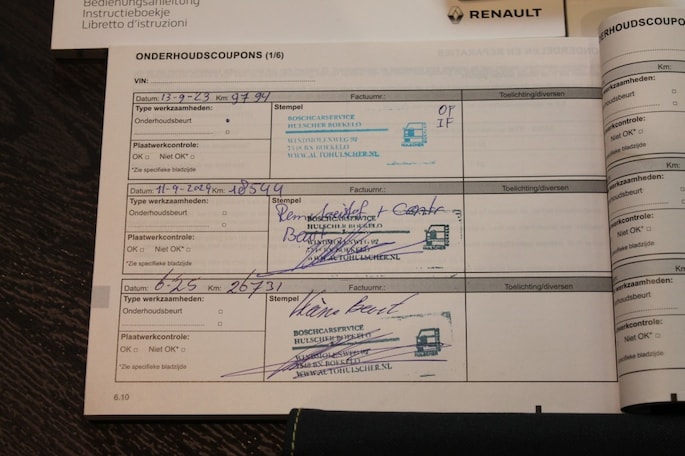 Bedieningsaanleitung
Instructieboekje
Libretto d'istruzioni
RENAULT
ONDERHOUDSCOUPONS (1/6)
VIN:
Datum: 13-9-23 Km: 9794 Factuurnr.: Toelichting/diversen
Type werkzaamheden: Stempel
Onderhoudsbeurt
BOSCHCARSERVICE
HULSCHER BOEKELO
WINDMOLENWEG 92
7548 BN BOEKELO
WWW.AUTOHULSCHER.NL
HULSCHER
OF
IF
Plaatwerkcontrole:
OK Niet OK*
*Zie specifieke bladzijde
Datum: 11-9-2024 Km: 18544 Factuurnr.: Toelichting/diversen
Type werkzaamheden: Stempel
Onderhoudsbeurt
Rem
Beurt
BOSCHCARSERVICE
HULSCHER BOEKELO
WINDMOLENWEG 92
WWW.AUTOHULSCHER.NL
Plaatwerkcontrole:
OK Niet OK*
*Zie specifieke bladzijde
Datum: 6-25 Km: 26731 Factuurnr.: Toelichting/diversen
Type werkzaamheden: Stempel
Onderhoudsbeurt
Beurt
BOSCHCARSERVICE
HULSCHER BOEKELO
WINDMOLENWEG 92
WWW.AUTOHULSCHER.NL
HULSCHER
Plaatwerkcontrole:
OK Niet OK*
*Zie specifieke bladzijde
6.10
ERHOUDSCOUPON
Km:
werkzaamheden:
houdsbeurt
werkcontrole:
Niet OK*
ecifieke bladzijde
Km:
werkzaamheden:
rhoudsbeurt
twerkcontrole:
Niet OK*
specifieke bladzijde
Km:
werkzaamheden:
rhoudsbeurt
twerkcontrole:
Niet OK*
specifieke bladzijde